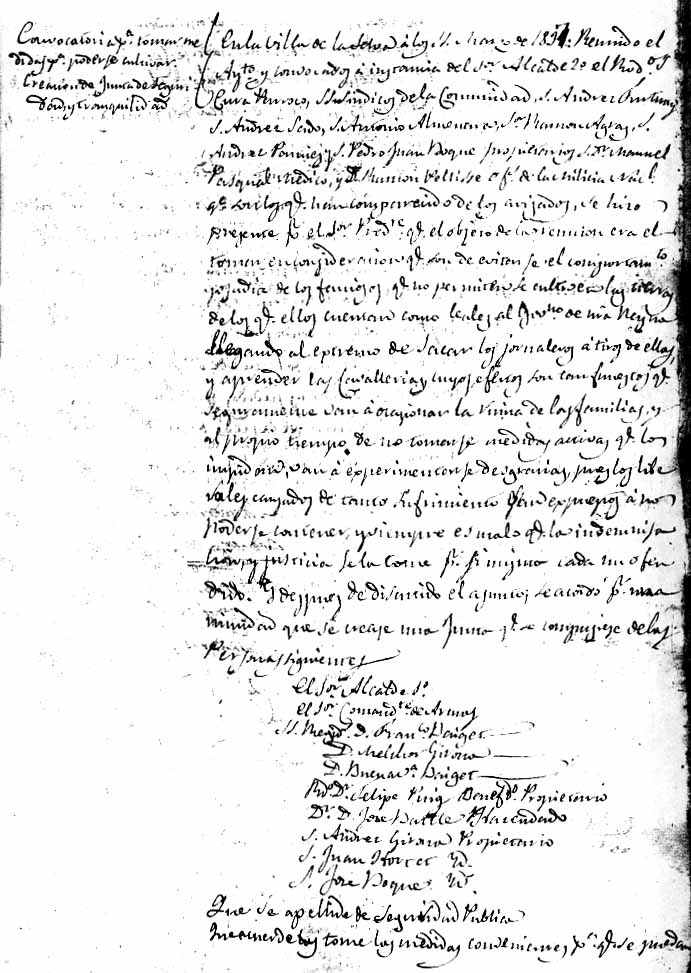 Convocatoria pª. tomar me
didas pª. poderse cultivar.
Creacion de Junta de seguri
dad y tranquilidad
En la Villa de la Selva á los 11 Marzo de 1837: Reunido el
Aytº. y convocados á instancia del Sor. Alcalde 2º el Rdo. Sr
Cura Parroco, SS. Sindicos de la Comunidad, S. Andres
S. Andres S. Antonio Almenara, S. Ramon S.
Andres y S. Pedro Juan Boque propietarios, S. Dr. Manuel
Pasqual Medico, y D. Ramon of. de la Milicia Nacl.
qe. son los qe. han comparecido de los avisados, se hizo
presente pr. el Sor. Predte. qe. el objeto de la reunion era el
tomar en consideracion qe. son de evitarse el comportamto.
de los facciosos, qe. no permiten se cultiven las tierras
de los qe. ellos cuentan como leales al Govno. de nra Reyna
llegando al extremo de sacar los jornaleros á tiros de ellas
y aprender las Cavallerias, cuyos efectos son tan funestos qe.
seguramente van á ocasionar la ruina de las familias, y
al propio tiempo de no tomarse medidas activas qe. los
van á experimentarse desgracias, pues los libe
rales cansados de tanto sufrimiento estan expuestos á no
poderse contener, y siempre es malo qe. la indemnisa
cion, y justicia se la tome pr. si mismo cada uno ofen
dido. Y despues de discutido el asunto, se acordó pr. una
nimidad que se crease una Junta qe. se compusiese de las
Personas siguientes
El Sor. Alcalde 1º.
El Sor. Comandte. de Armas
SS. Regid. D. Franco. Puiget
D. Melchor Girona
D. Buenava. Puiget
Rdo. Dr. Felipe Puig Benefdo. Propietario
Dr. D. Jose Batlle Hacendado
S. Andres Girona Propietario
S. Juan Yd.
S. Jose Boque Yd.
Que se apellide de Seguridad Publica
Que acuerde y tome las medidas convenientes pª. qe. se puedan